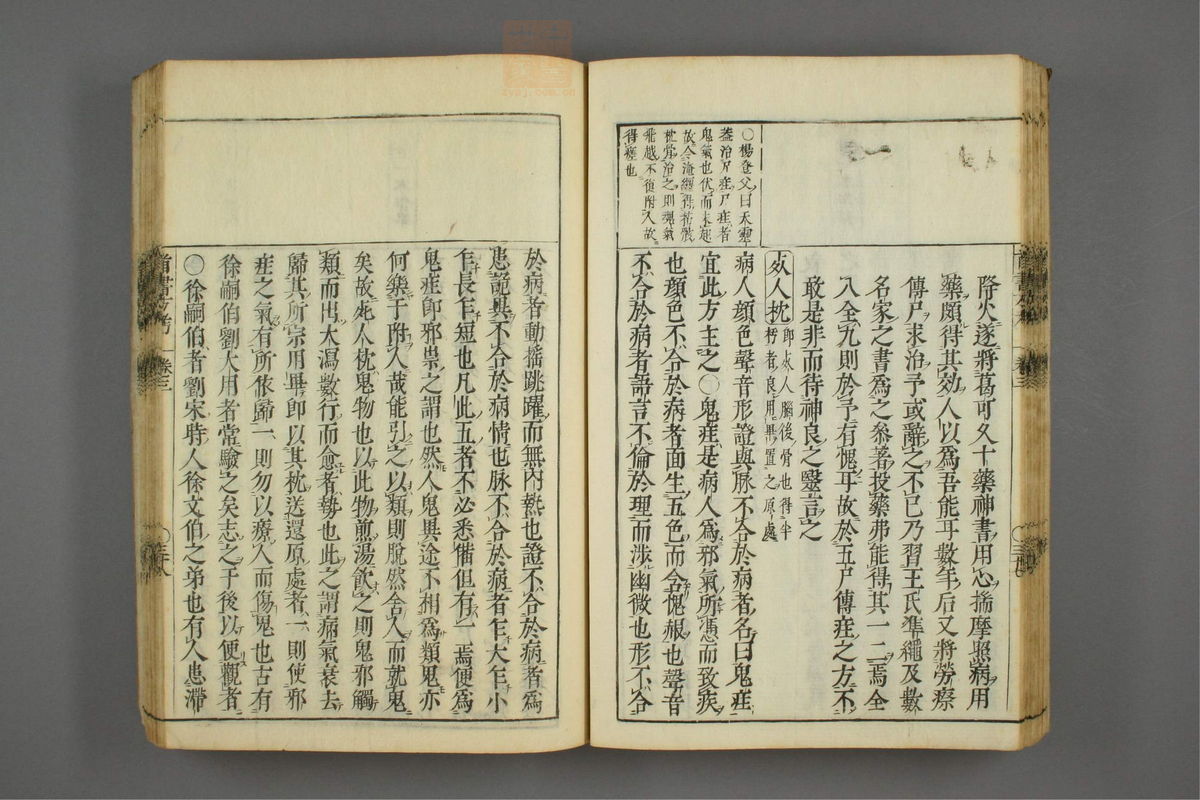 降火遂將葛可久十藥神書用心揣摩照病用
藥頗得其効人以爲吾能耳數年后又將勞瘵
傳尸求治予或辭之不已乃習王氏準繩及數
名家之書爲之叅著投藥弗能得其一二焉全
入全九則於予有愧耳故於五尸傳疰之方不
敢是非而待神良之毉言之
死人枕
即死人腦後骨也得半
朽者良用畢置之原處
病人顔色聲音形證與脉不合於病者名曰鬼疰
宜此方主之○鬼疰是病人爲邪氣所憑而致疾
也顔色不合於病者面生五色而含愧赧也聲音
不合於病者語言不倫於理而涉幽微也形不合
○楊登父曰天靈
蓋治尸疰尸疰者
鬼氣也伏而未起
故令淹纏得枯骸
枕骨治之則魂氣
飛越不復附人故
得瘥也
於病者動搖跳躍而無内熱也證不合於病者爲
患詭異不合於病情也脉不合於病者乍大乍小
乍長乍短也凡此五者不必悉偹但有一焉便爲
鬼疰即邪祟之謂也然人鬼異途不相爲類鬼亦
何樂于附人哉能引之以類則脫然舍人而就鬼
矣故死人枕鬼物也以此物煎湯飲之則鬼邪觸
類而出大瀉數行而愈者勢也此之謂病氣衰去
歸其所宗用畢即以其枕送還原處者一則使邪
疰之氣有所依歸一則勿以療人而傷鬼也古有
徐嗣伯劉大用者常驗之矣志之于後以便觀者
○徐嗣伯者劉宋時人徐文伯之弟也有人患滯
卷三
卷三